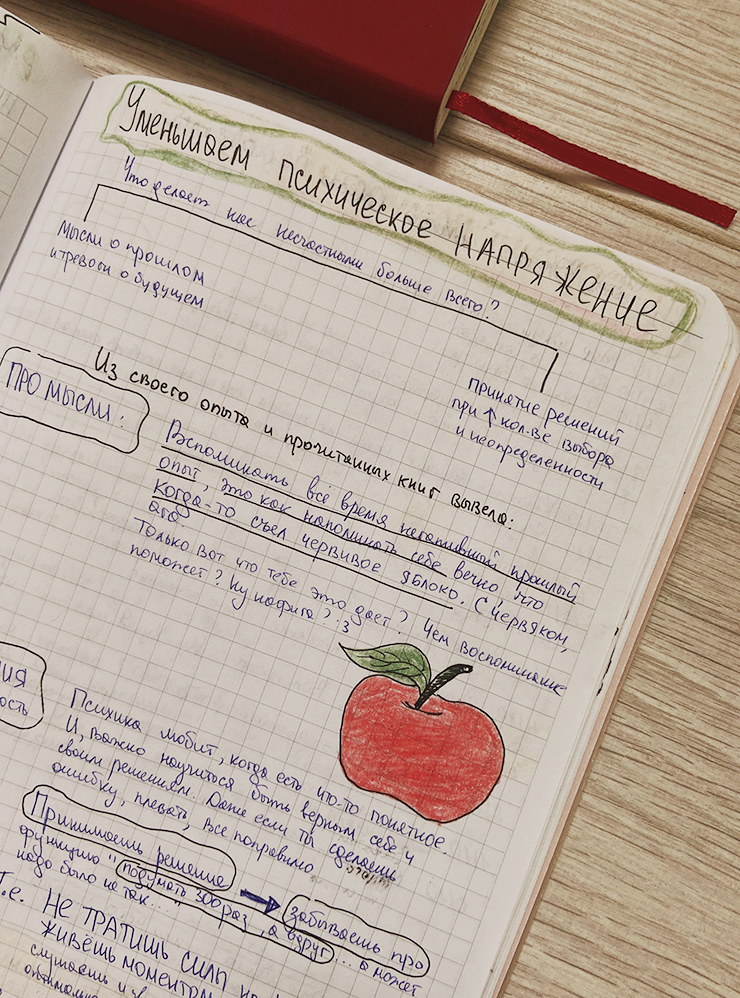 Уменьшаем психическое напряжение
Что делает нас несчастными больше всего?
Мысли о прошлом
и тревоги о будущем
принятие решений
при ↑ кол-ве выбора
и неопределенности
Из своего опыта и прочитанных книг вывела:
ПРО МЫСЛИ:
Вспоминать всё время негативный прошлый
опыт, это как напоминать себе вечно что
когда-то съел червивое яблоко. С червяком,
ага
Только вот что тебе это дает? Чем воспоминание
поможет? Ну нафига? :3
ИЯ
ость
Психика любит, когда есть что-то понятное.
И, важно научиться быть верным себе и
своим решениям. Даже если ты сделаешь
ошибку, плевать, все поправимо
Принимаешь решение → забываешь про
функцию "подумать 300 раз, а вдруг... а может
надо было не так..."
Т.е. НЕ ТРАТИШЬ СИЛЫ
живёшь моментом
слушаешь и